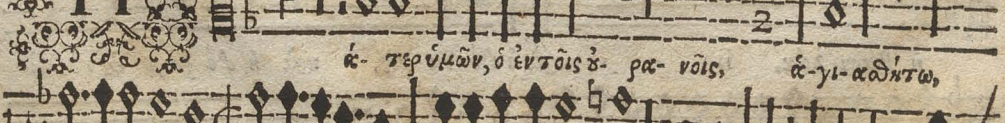 2
ά- τερ ὑμῶν, ὁ ἐν τοῖς ὐ- ρα- νοῖς, ἁ-γι-ασθήτω,